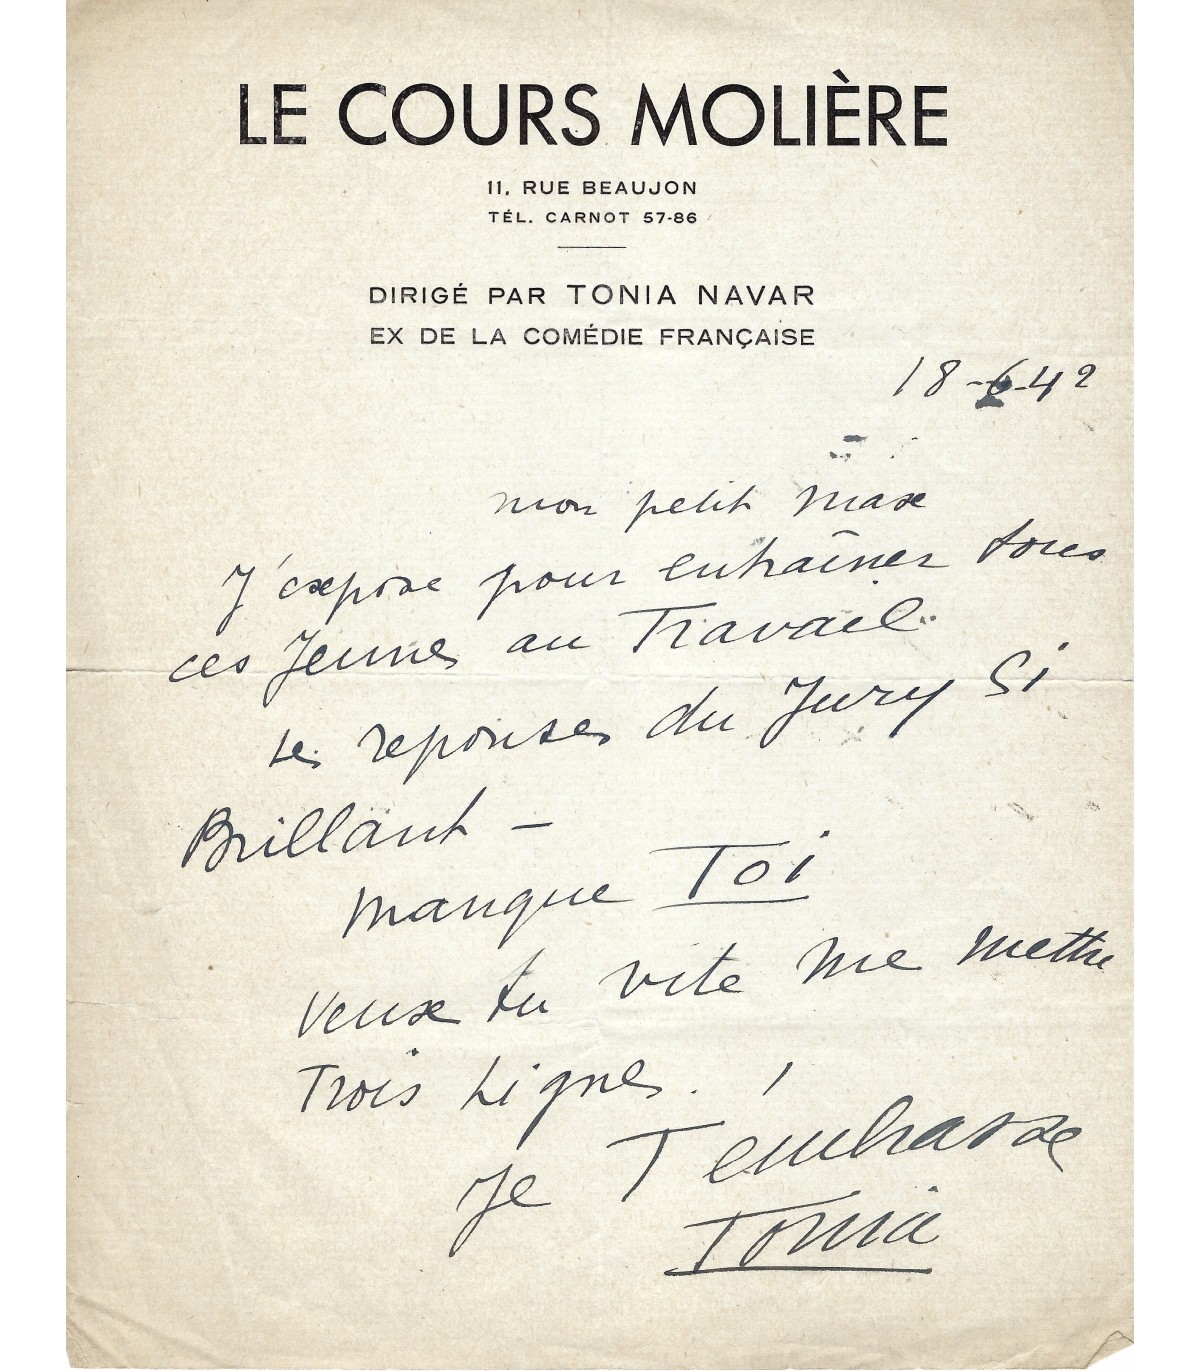 LE COURS MOLIÈRE
11, RUE BEAUJON
TÉL. CARNOT 57-86
DIRIGÉ PAR TONIA NAVAR
EX DE LA COMÉDIE FRANÇAISE
18-6-42
mon petit Max
J'expose pour entraîner tous
ces Jeunes au Travail
les reponses du Jury Si
Brillant –
manque Toi
Veux tu vite me mettre
Trois Lignes.
Je T'embrasse
Tonia